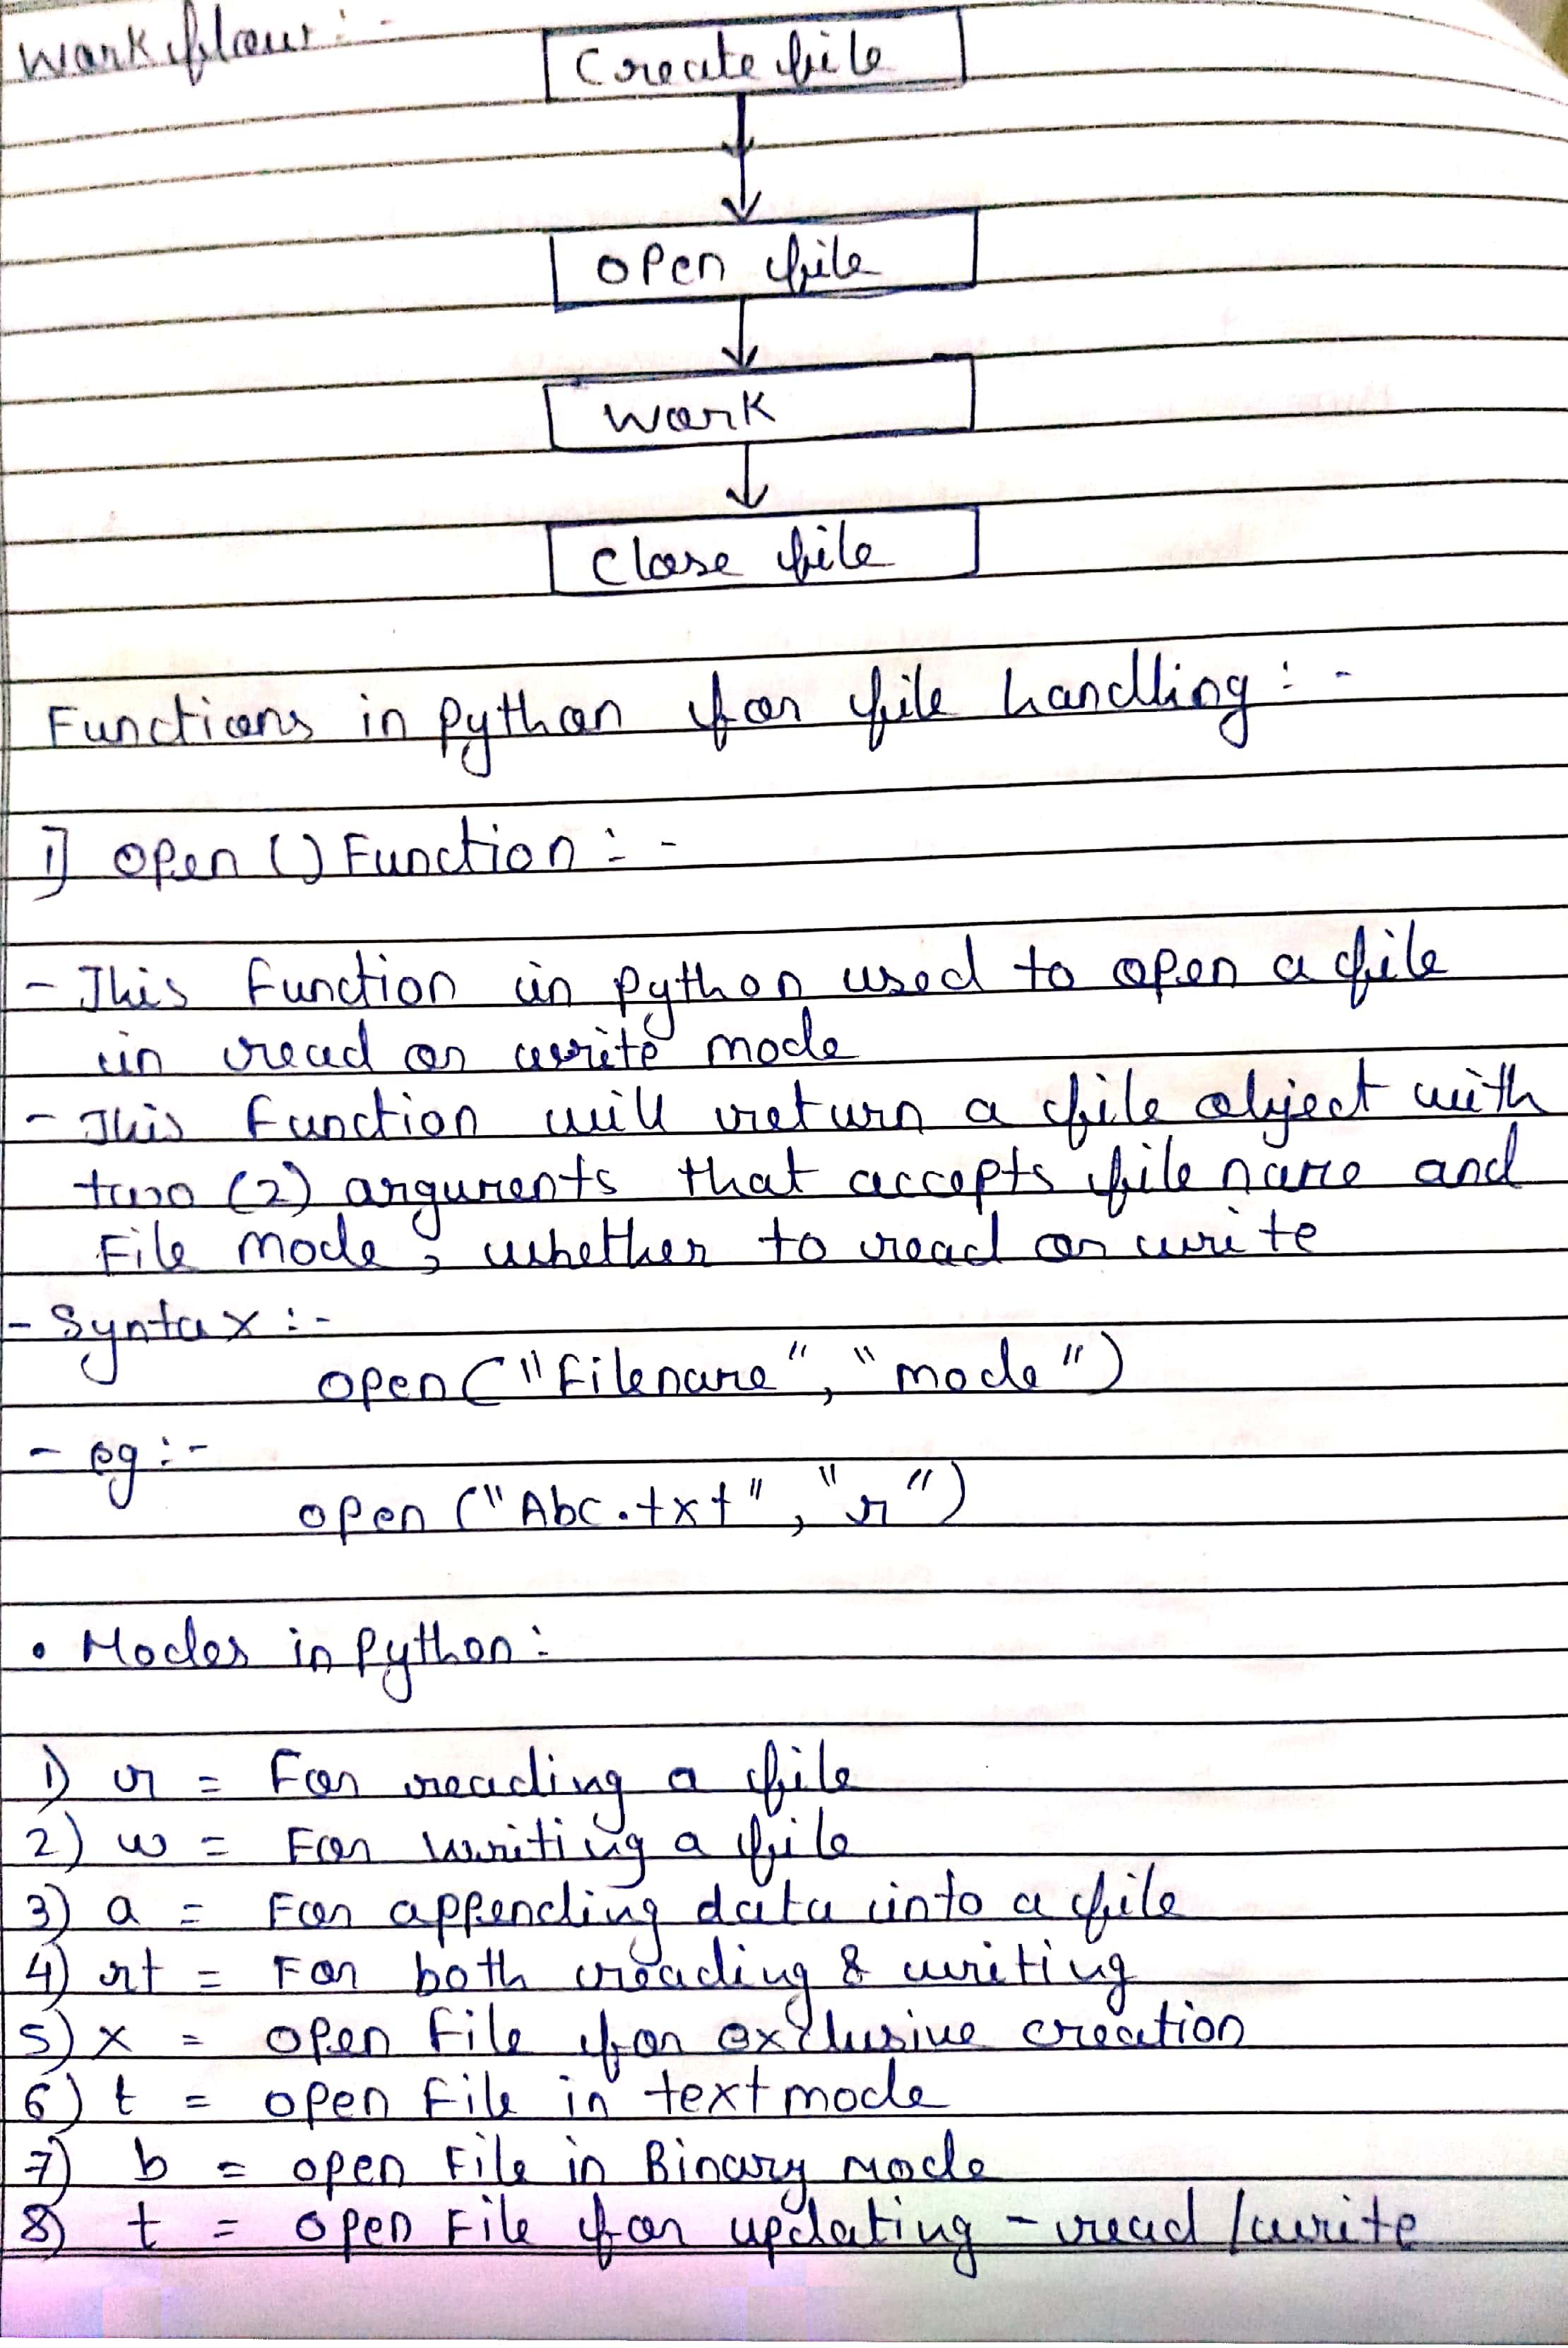 Workflow :-
Create file
open file
work
close file
Functions in python for file handling :-
1] open () Function :-
- This function in python used to open a file
in read or write mode
- This function will return a file object with
two (2) arguments that accepts file name and
File mode, whether to read or write
- Syntax :-
open ("Filename", "mode")
- eg :-
open ("Abc.txt", "r")
• Modes in python :
1) r = For reading a file
2) w = For writing a file
3) a = For appending data into a file
4) rt = For both reading & writing
5) x = open file for exclusive creation
6) t = open file in text mode
7) b = open File in Binary mode
8) t = open File for updating - read / write